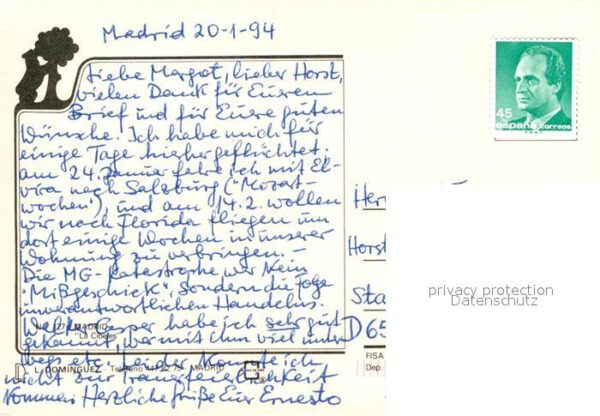 Madrid 20-1-94
Liebe Margot, lieber Horst,
vielen Dank für Eueren
Brief und für Euere guten
Wünsche. Ich habe mich für
einige Tage hierher geflüchtet.
am 24. Januar fahre ich mit El-
vira nach Salzburg ("Mozart-
wochen"), und am 14.2. wollen
wir nach Florida fliegen um
dort einige Wochen in unserer
Wohnung zu verbringen. -
Die MG-Katastrophe war kein
"Mißgeschick", sondern die Folge
unverantwortlichen Handelns.
habe ich sehr gut
gekannt, war mit ihm viel unter
wegs etc. Leider konnte ich
nicht zur Trauerfeierlichkeit
kommen. Herzliche Grüße Eur Ernesto
MADRID
"La Cibeles"
L. DOMINGUEZ - Teléfono MADRID
45
españa correos
Her
Horst
Sta
D65
FISA
Dep.
privacy protection
Datenschutz